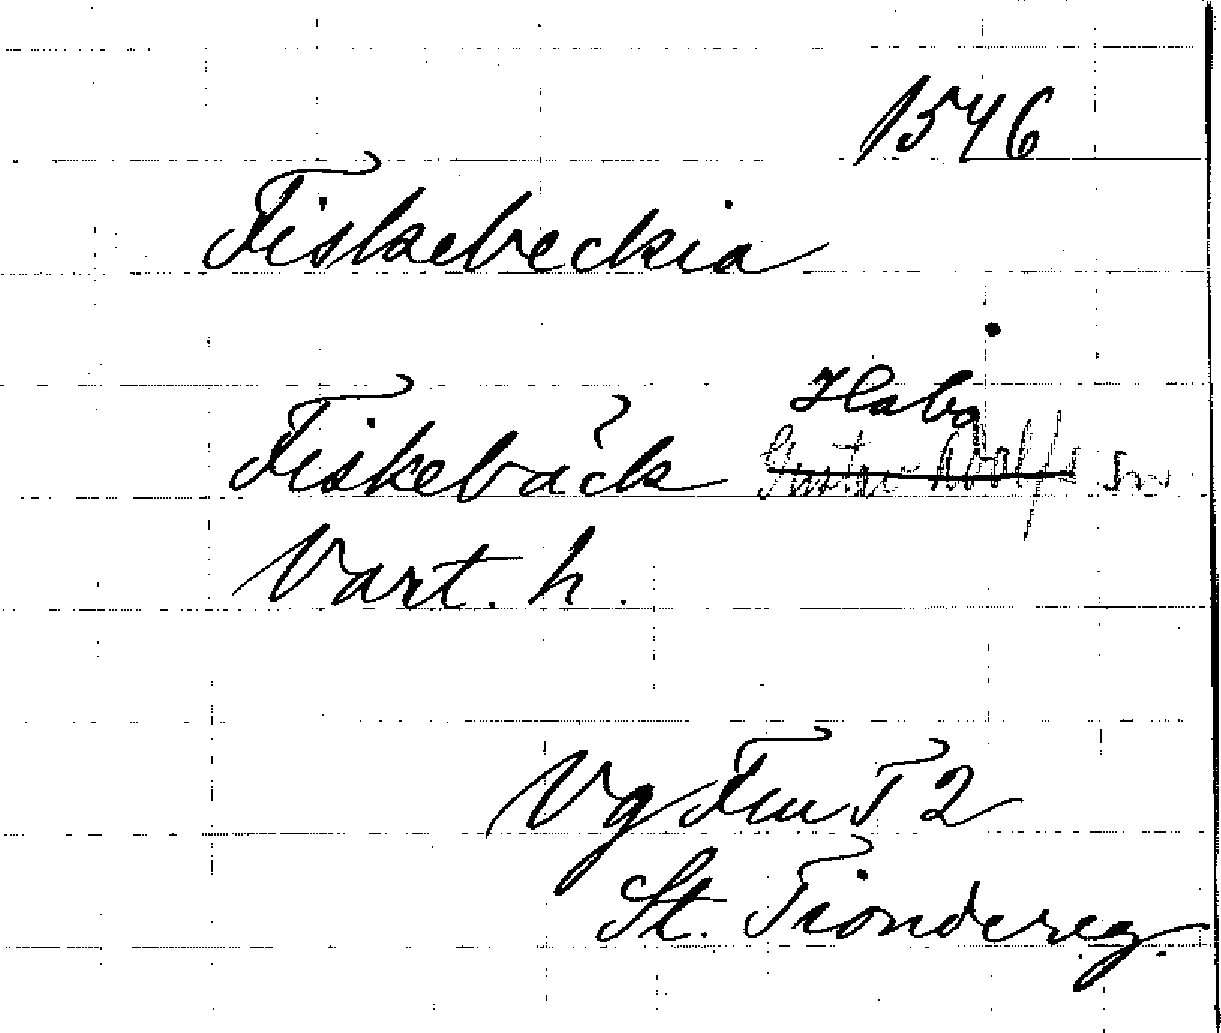 1546
Fiskebeckia
Habo
Fiskebäck Gustav Adolfs sn
Vart. h.
Vg Fru T 2
St. Tiondereg.